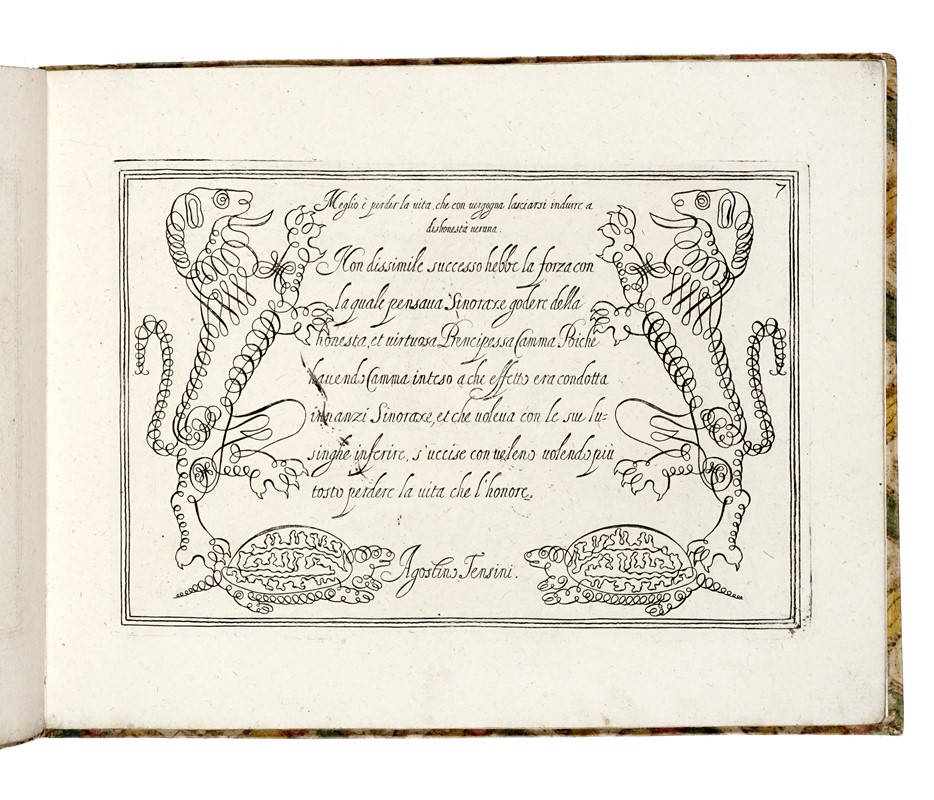 7
Meglio è perder la uita, che con uergogna lasciarsi indurre a
dishonestà ueruna.
Non dissimile successo hebbe la forza con
la quale pensaua Sinoraxe godere della
honesta, et uirtuosa Prencipessa Camma Poiche
hauendo Camma inteso a che effetto era condotta
innanzi Sinoraxe, et che uoleua con le sue lu=
singhe inferire, s'uccise con ueleno uolendo più
tosto perdere la uita che l'honore.
Agostino Tensini.